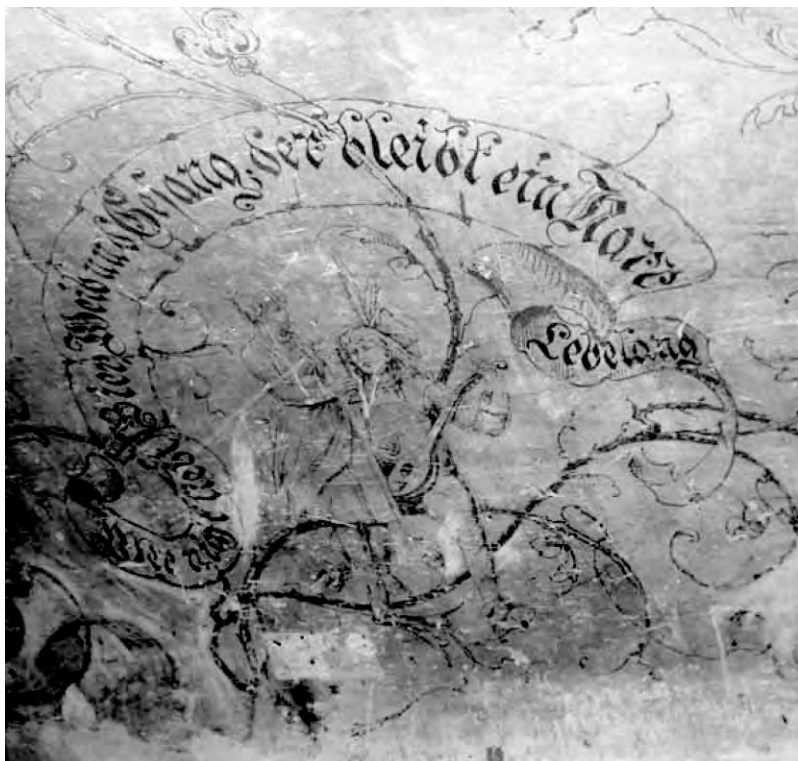 Wer liebt Bier, Weib und Gesang, der bleibt ein Narr
Lebelang